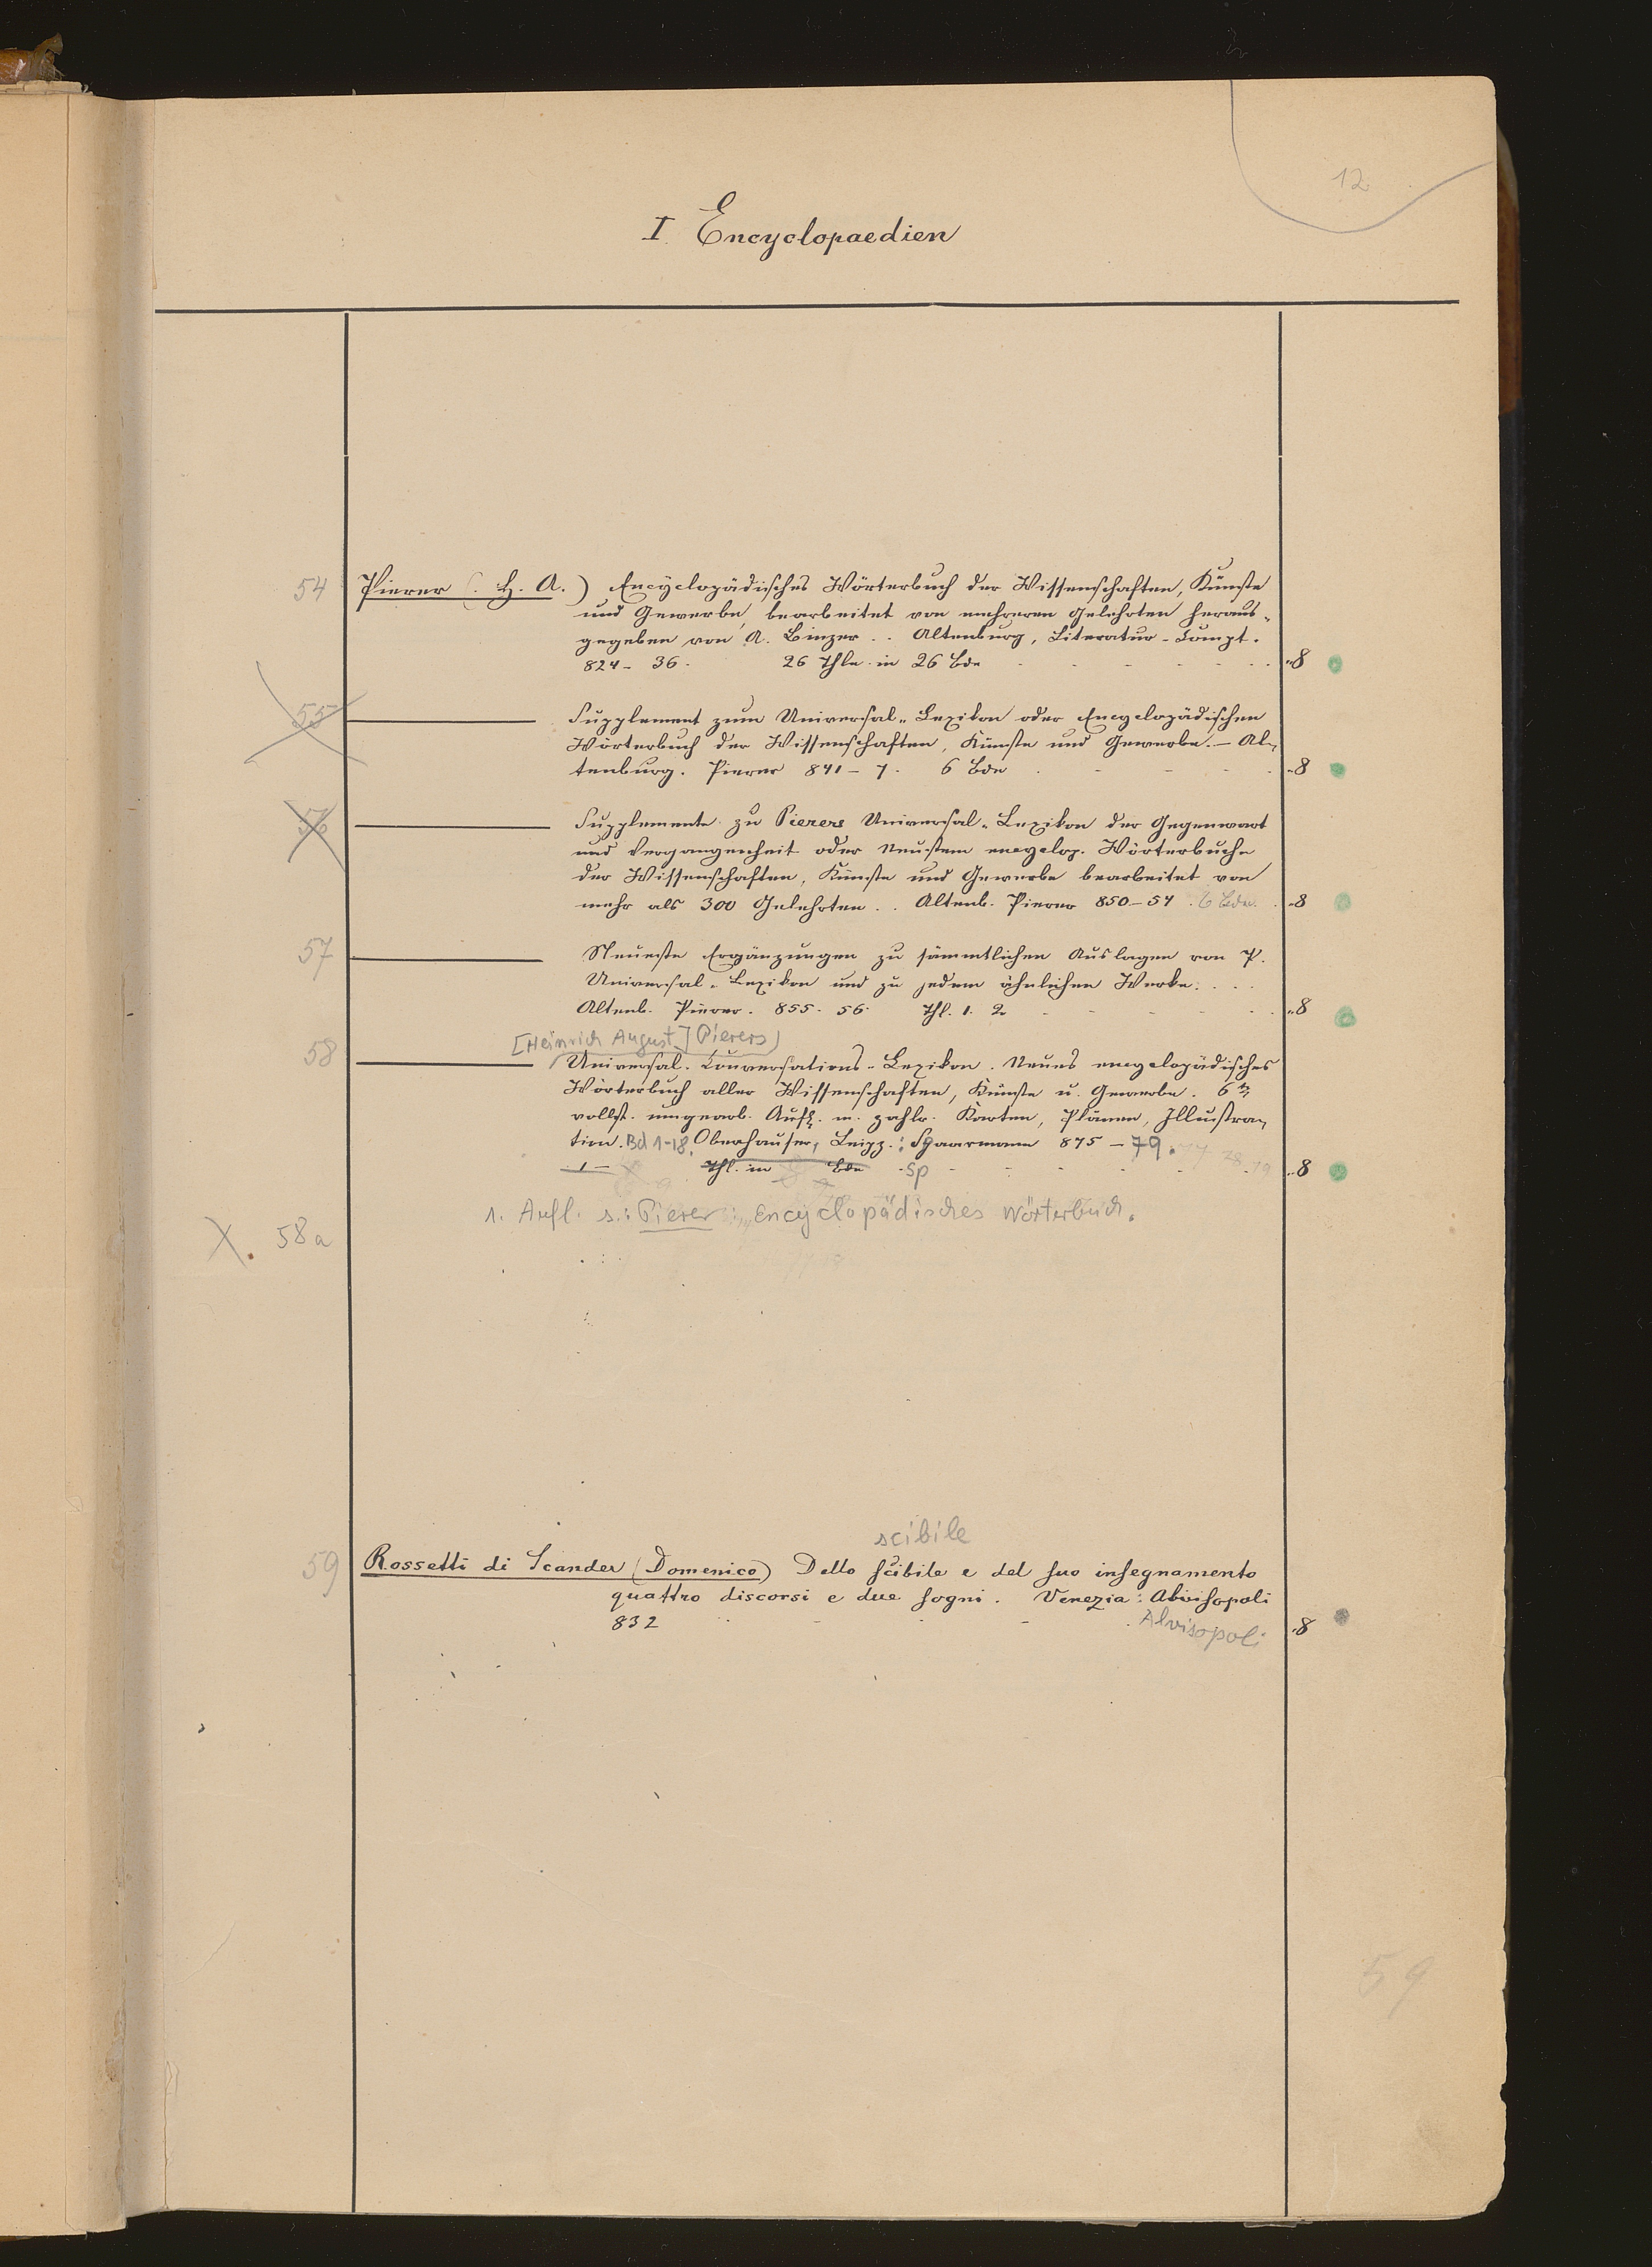 12
I. Encyclopaedien
54 Pierer (: H. A.) Encyclopädisches Wörterbuch der Wissenschaften, Künste
und Gewerbe, bearbeitet von mehreren Gelehrten heraus-
gegeben von A. Binzer . . Altenburg, Literatur-Compt.
824-36. 26 Thle. in 26 Bde - - - - 8
55 ——— Supplement zum Universal-Lexikon oder Encyclopädischen
Wörterbuch der Wissenschaften, Künste und Gewerbe. - Al-
tenburg. Pierer 841-7. 6 Bde - - - 8
56 ——— Supplemente zu Pierers Universal-Lexikon der Gegenwart
und Vergangenheit oder Neustem encyclop. Wörterbuche
der Wissenschaften, Künste und Gewerbe bearbeitet von
mehr als 300 Gelehrten . . Altenb. Pierer 850-54. 6 Bde. 8
57 ——— Neueste Ergänzungen zu sämmtlichen Auslagen von P.
Universal-Lexikon und zu jedem ähnlichen Werke. . . .
Altenb. Pierer. 855-56. Thl. 1. 2 - - - - 8
[Heinrich August] Pierers
58 ——— Universal-Conversations-Lexikon. Neues encyclopädisches
Wörterbuch aller Wissenschaften, Künste u. Gewerbe. 6te
vollst. umgearb. Aufl. m. zahlr. Karten, Plänen, Illustra-
tion. Bd 1-18. Oberhausen, Leipz.: Spaarmann 875-79.
1- Thl. in Bde Sp - - - - 8
1. Aufl. s.: Pierer: Encyclopädisches Wörterbuch.
X. 58a
scibile
59 Rossetti di Scander (Domenico) Dello scibile e del suo insegnamento
quattro discorsi e due sogni. Venezia: Abvisopoli
832 - - - Alvisopoli 8
59